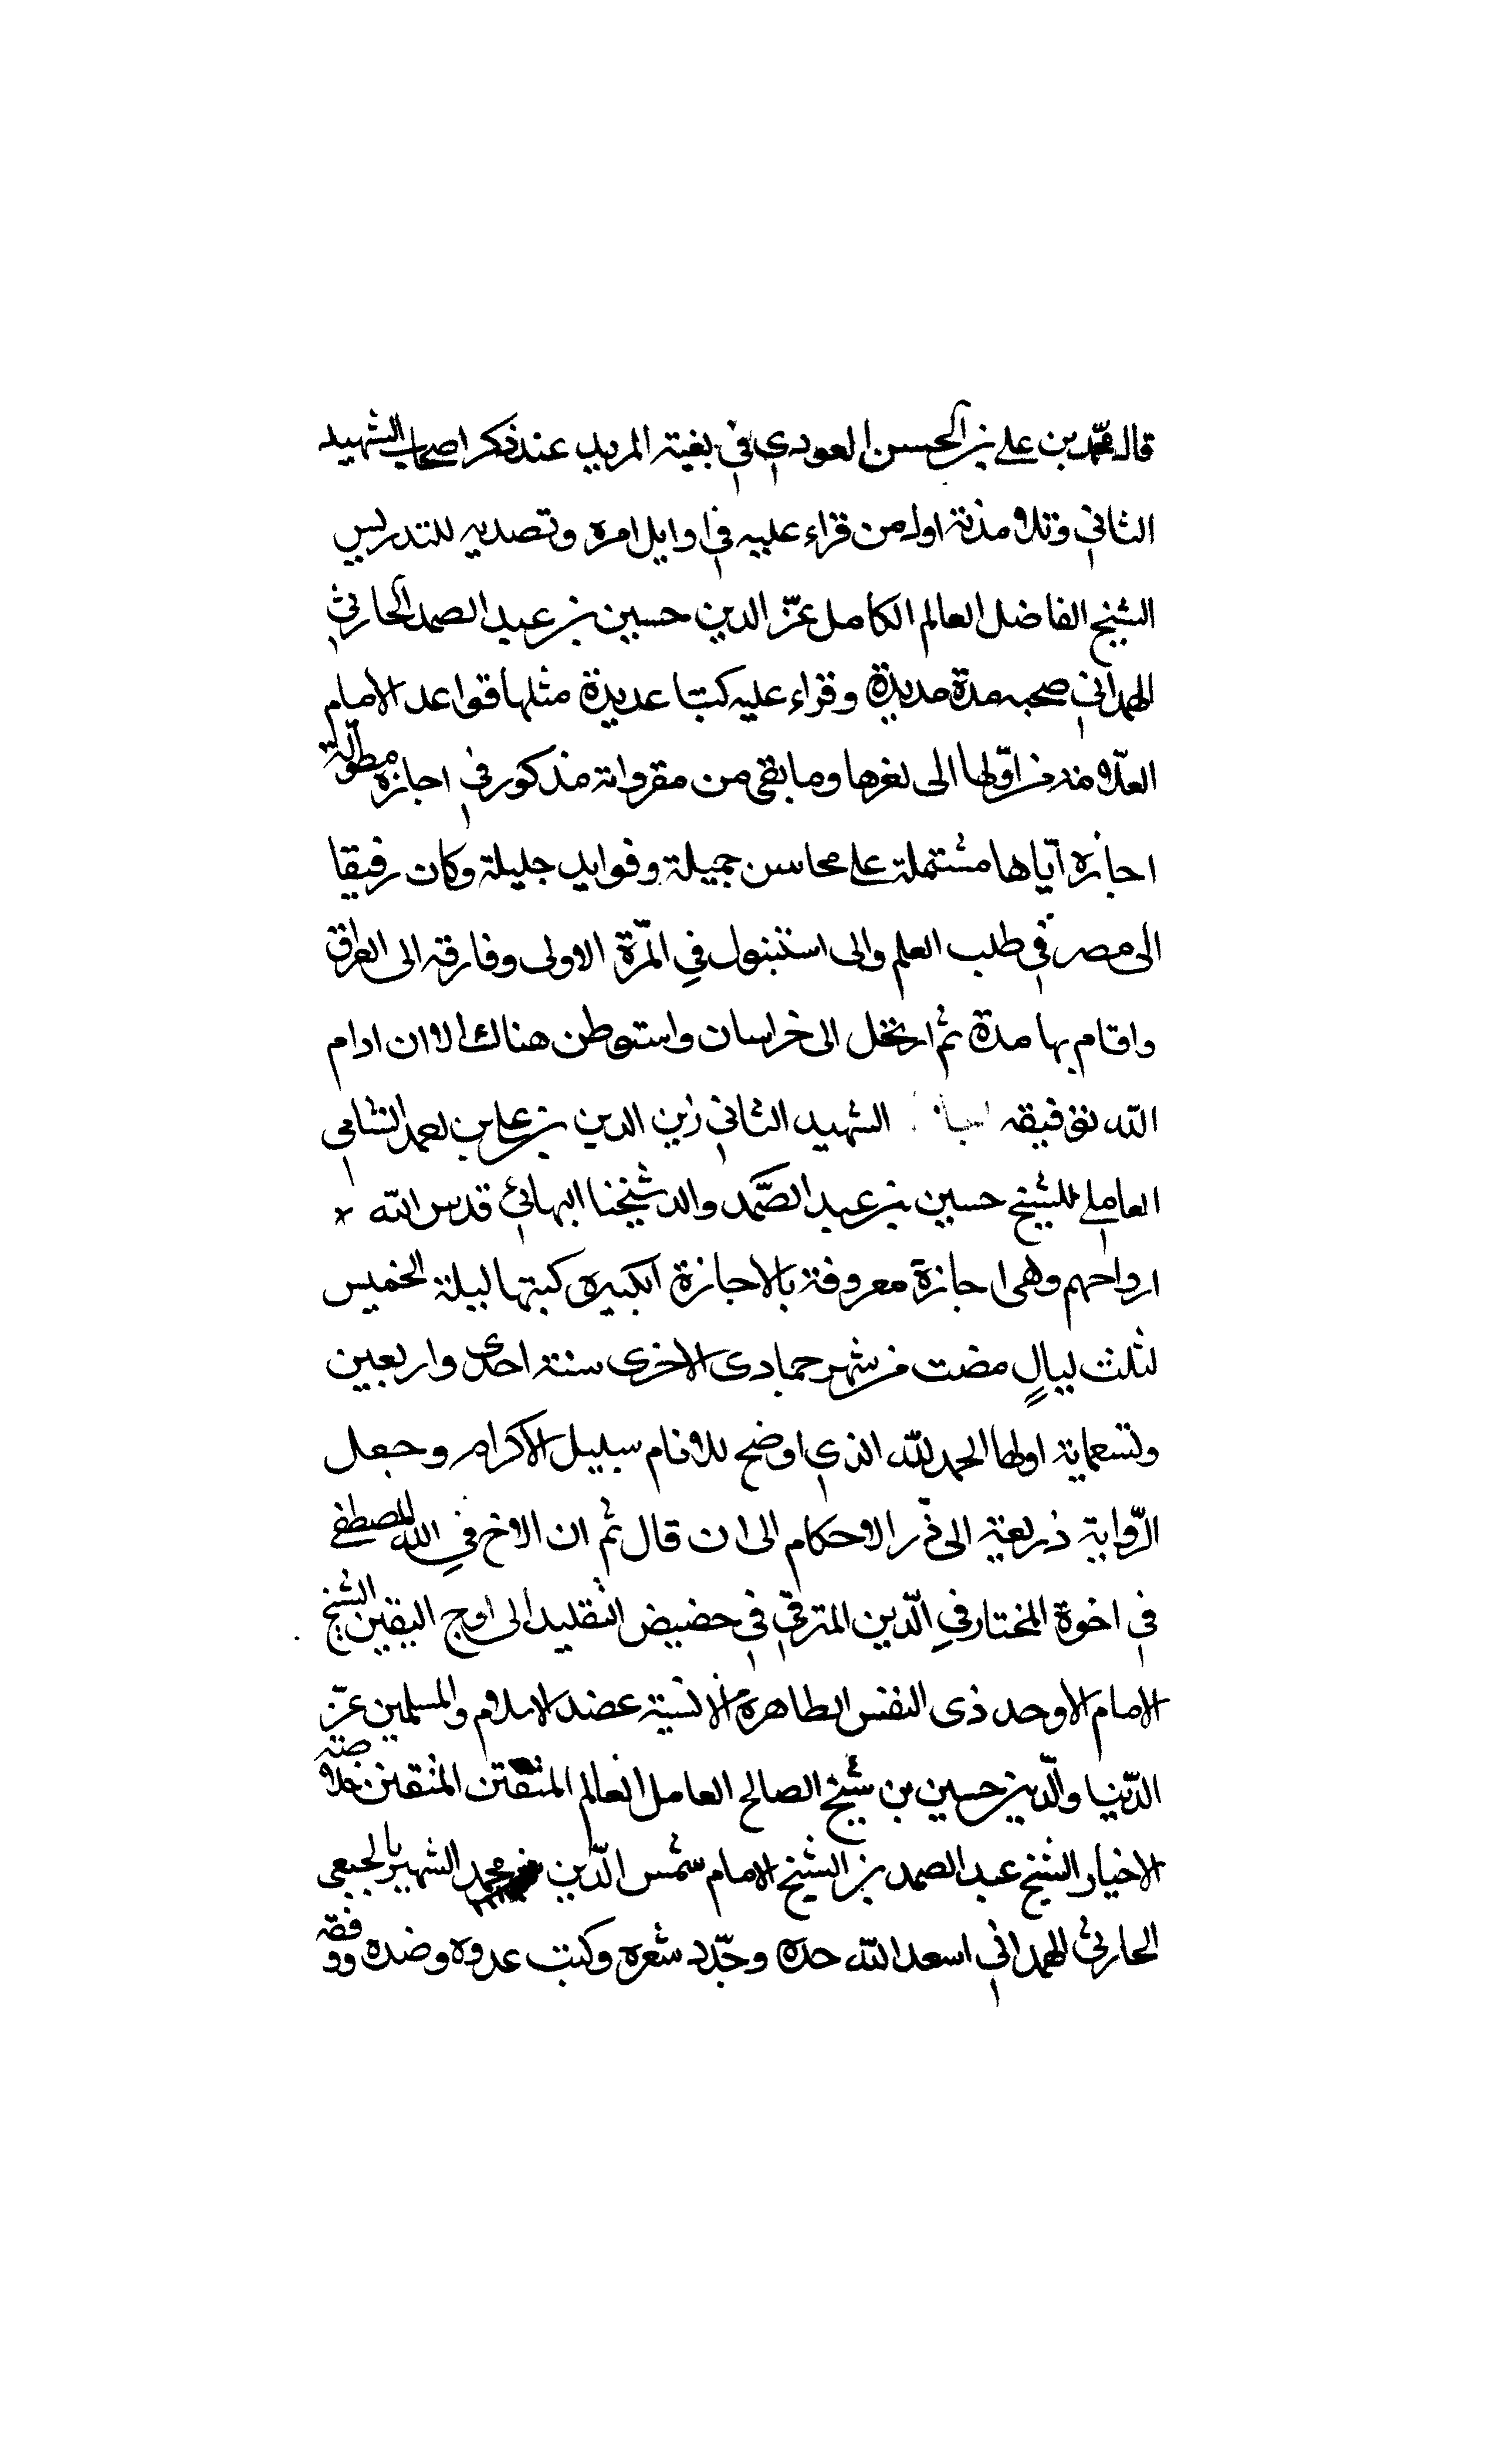 قال محمد بن علي بن الحسن العودي في بغية المريد عند ذكر اصحاب الشهيد
الثاني وتلامذته اول من قراء عليه في اوايل امره وتصديه للتدريس
الشيخ الفاضل العالم الكامل عزّ الدين حسين بن عبد الصمد الحارثي
الهمداني صحبه مدة مديدة وقراء عليه كتبا عديدة مثلها قواعد الامام
العلامة من اوّلها الى اخرها وما بقي من مقرواته مذكور في اجازة مطوّلة
اجازه ايّاها مشتملة على محاسن جميلة وفوايد جليلة وكان رفيقا
الى مصر في طلب العلم والى استنبول في المرّة الاولى وفارقه الى العراق
واقام بها مدة ثم ارتحل الى خراسان واستوطن هناك الاان ادام
الله توفيقه الشهيد الثاني زين الدين بن علي بن احمد الشامي
العاملي للشيخ حسين بن عبد الصّمد والد شيخنا البهائي قدس الله
ارواحهم وهي اجازة معروفة بالاجازة الكبيرة كتبها ليلة الخميس
لثلث ليالٍ مضت من شهر جمادى الاخرى سنة احدى واربعين
وتسعماية اولها الحمد لله الذي اوضح للانام سبيل الاكرام وجعل
الرّواية ذريعة الى الاحكام الى ان قال ثم ان الاخ في الله المصطفى
في اخوة المختار في الدّين المترقي في حضيض التقليد الى اوج اليقين الشيخ
الامام الاوحد ذى النفس الطاهرة عضد الاسلام والمسلمين عزّ
الدّنيا والدّين حسين بن شيخ الصالح العامل العالم المتقن خلاصة
الاخيار الشيخ عبد الصمد بن الشيخ الامام شمس الدّين محمد الشهير بالجبعي
الحارثي الهمداني اسعد الله جده وجدّد شعره وكبت عدوه وضده ووفقه